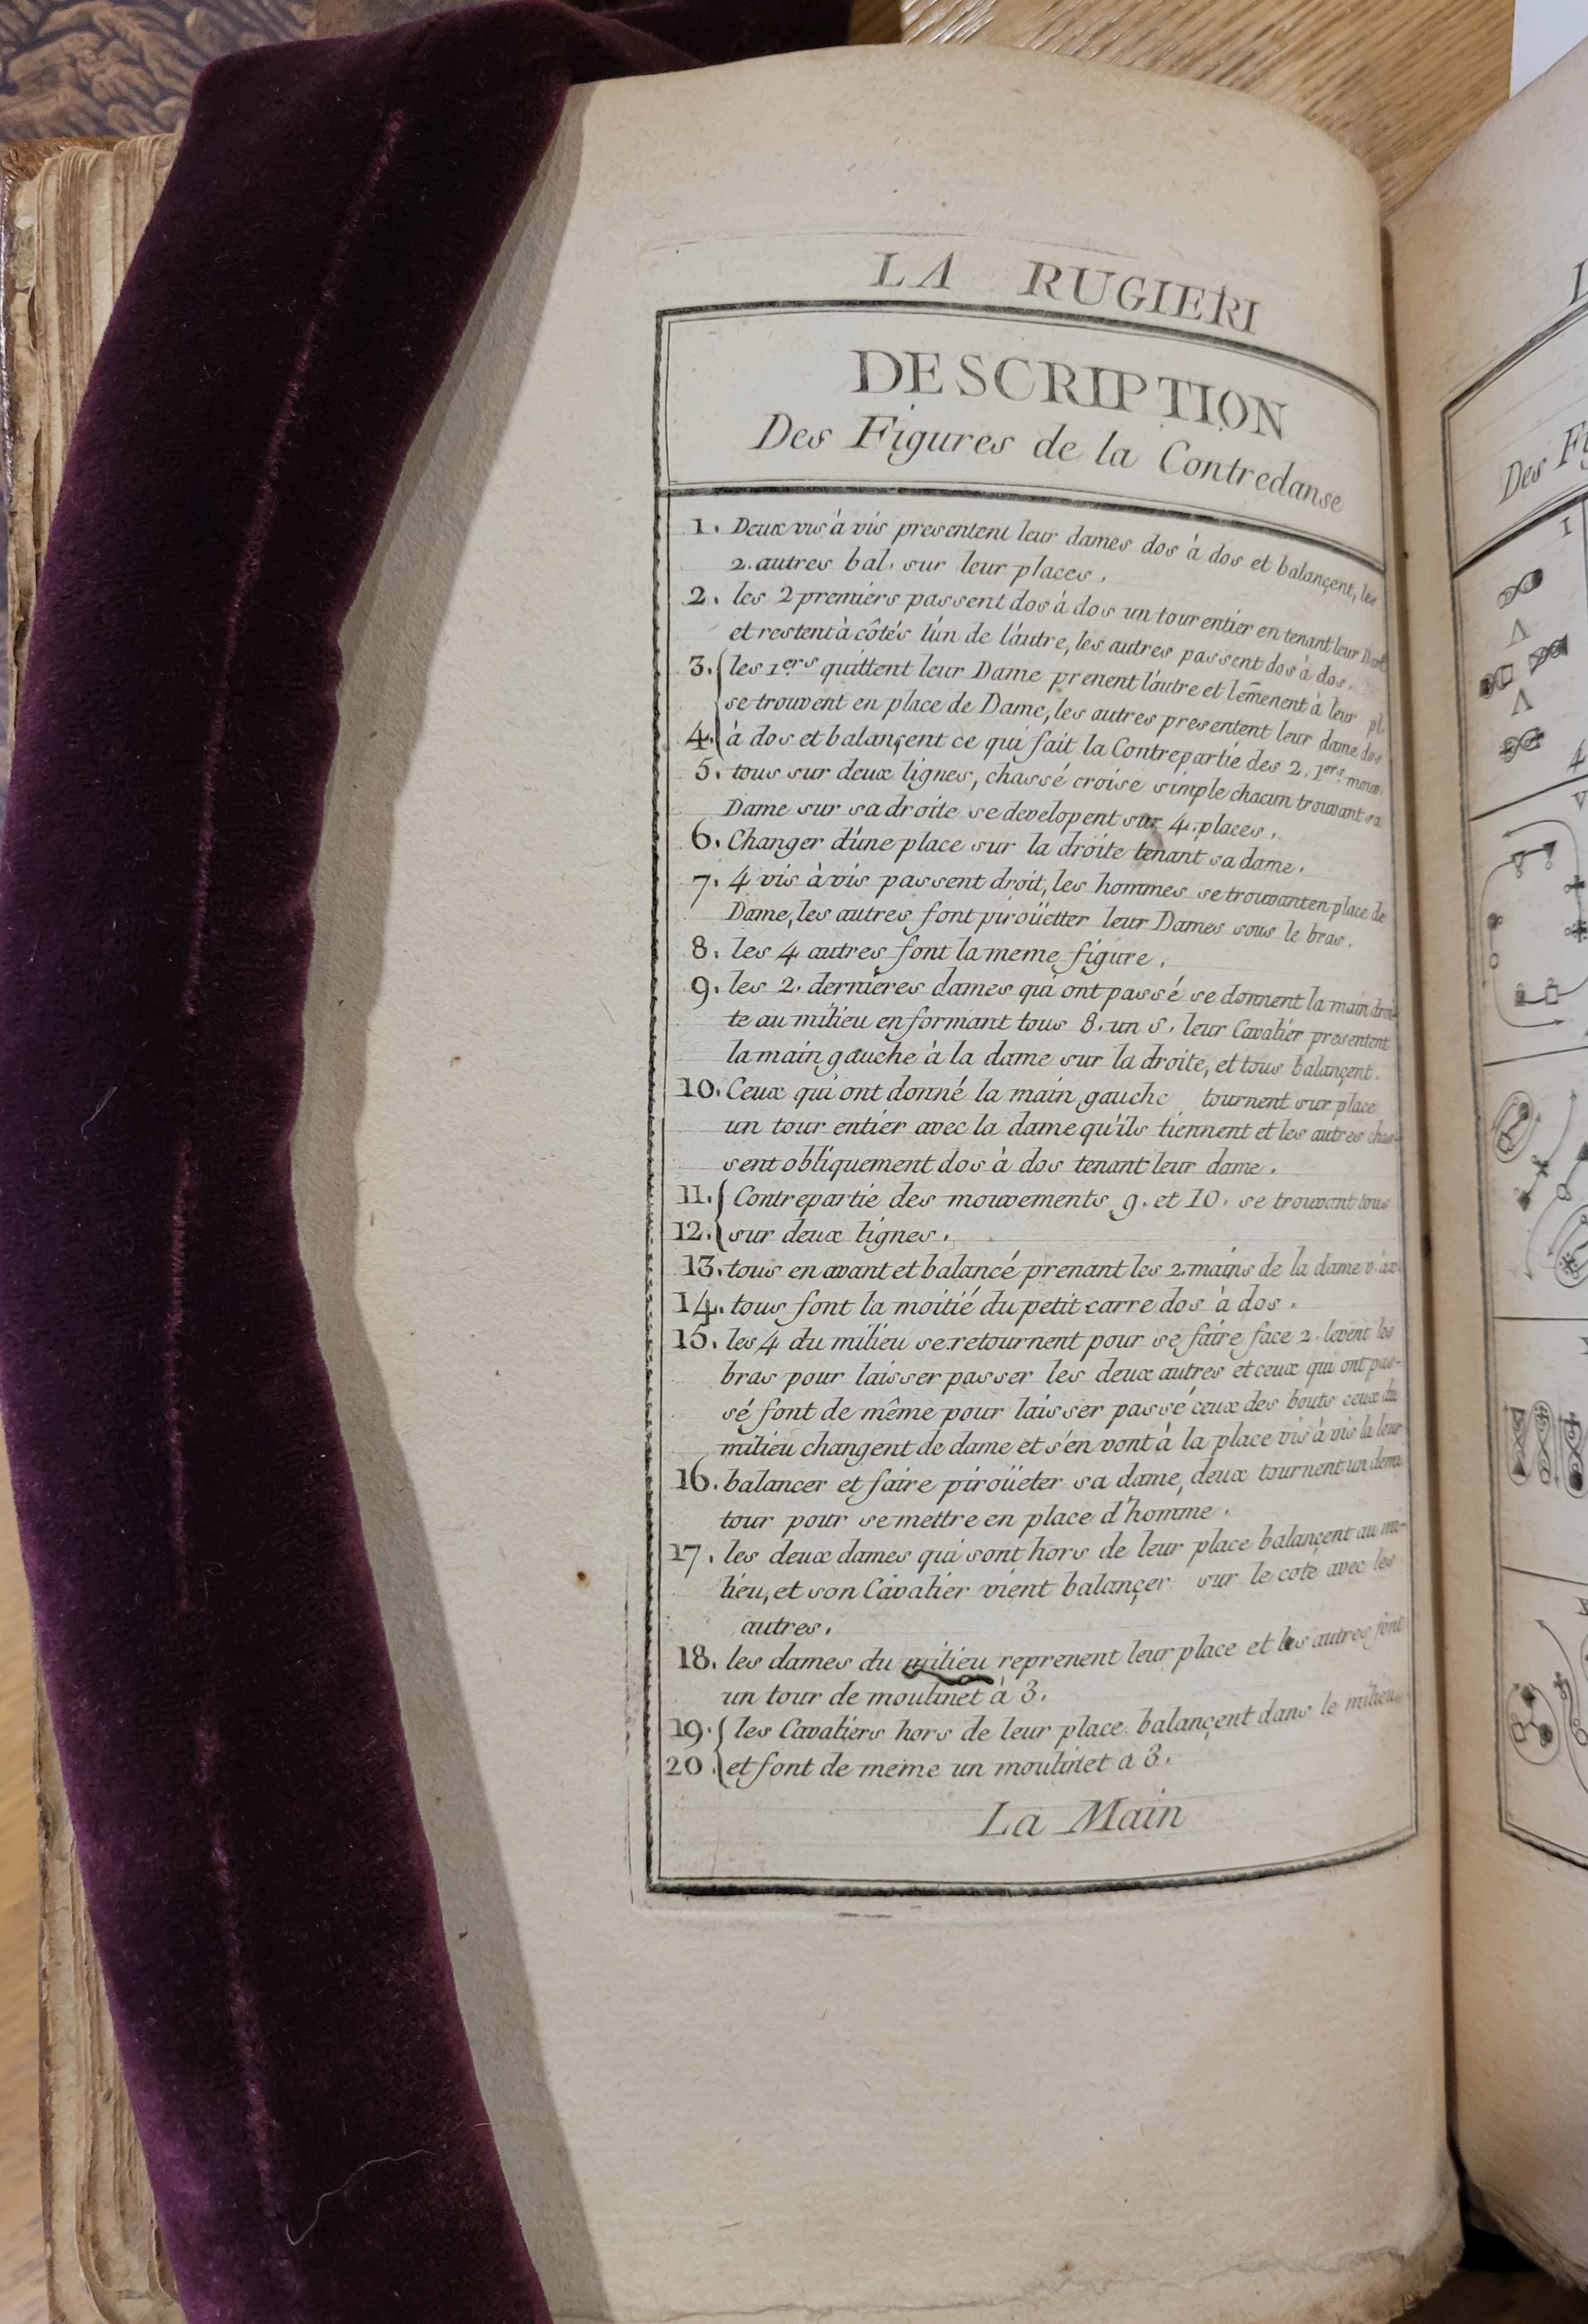 LA RUGIERI
DESCRIPTION
Des Figures de la Contredanse
1. Deux vis à vis presentent leur dames dos à dos et balançent, les
2. autres bal. sur leur places.
2. les 2 premiers passent dos à dos un tour entier en tenant leur Dame
et restent à côtés l'ùn de l'áutre, les autres passent dos à dos.
3. les 1ers quittent leur Dame prenent l'áutre et l'ēmenent à leur pl.
se trouvent en place de Dame, les autres presentent leur dame dos
4. à dos et balançent ce qui fait la Contrepartie des 2. 1ers mouv.
5. tous sur deux lignes, chassé croise simple chacun trouvant sa
Dame sur sa droite se developent sur 4. places.
6. Changer d'úne place sur la droite tenant sa dame.
7. 4 vis à vis passent droit, les hommes se trouvant en place de
Dame, les autres font piroüetter leur Dames sous le bras.
8. les 4 autres font la meme figure.
9. les 2. derniéres dames qui ont passé se donnent la main droi-
te au milieu en formant tous 8. un S. leur Cavalier presentent
la main gauche à la dame sur la droite, et tous balançent.
10. Ceux qui ont donné la main gauche tournent sur place
un tour entier avec la dame qu'ils tiennent et les autres chas-
sent obliquement dos à dos tenant leur dame.
11. Contrepartie des mouvements 9. et 10. se trouvant tous
12. sur deux lignes.
13. tous en avant et balancé prenant les 2. mains de la dame v. à v.
14. tous font la moitié du petit carre dos à dos.
15. les 4 du milieu se retournent pour se faire face 2. levent les
bras pour laisser passer les deux autres et ceux qui ont pas-
sé font de même pour laisser passé ceux des bouts ceux du
milieu changent de dame et s'en vont à la place vis à vis la leur
16. balancer et faire piroüeter sa dame, deux tournent un demi
tour pour se mettre en place d'homme.
17. les deux dames qui sont hors de leur place balançent au mi-
lieu, et son Cavalier vient balançer sur le coté avec les
autres.
18. les dames du milieu reprenent leur place et les autres font
un tour de moulinet à 3.
19. les Cavaliers hors de leur place balançent dans le milieu
20. et font de meme un moulinet a 3.
La Main
Des
I
4